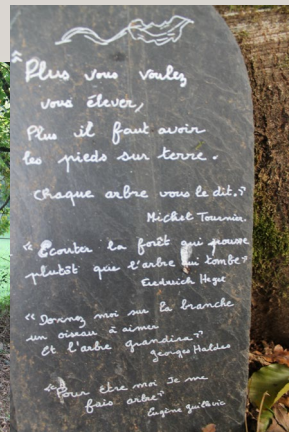 "Plus vous voulez
vous élever,
Plus il faut avoir
les pieds sur terre.
Chaque arbre vous le dit."
Michel Tournier.
"Ecouter la forêt qui pousse
plutôt que l'arbre qui tombe"
Friedrich Hegel
"Donnez moi sur la branche
un oiseau à aimer
Et l'arbre grandira"
Georges Haldas
"Pour être moi je me
fais arbre"
Eugène Guillevic